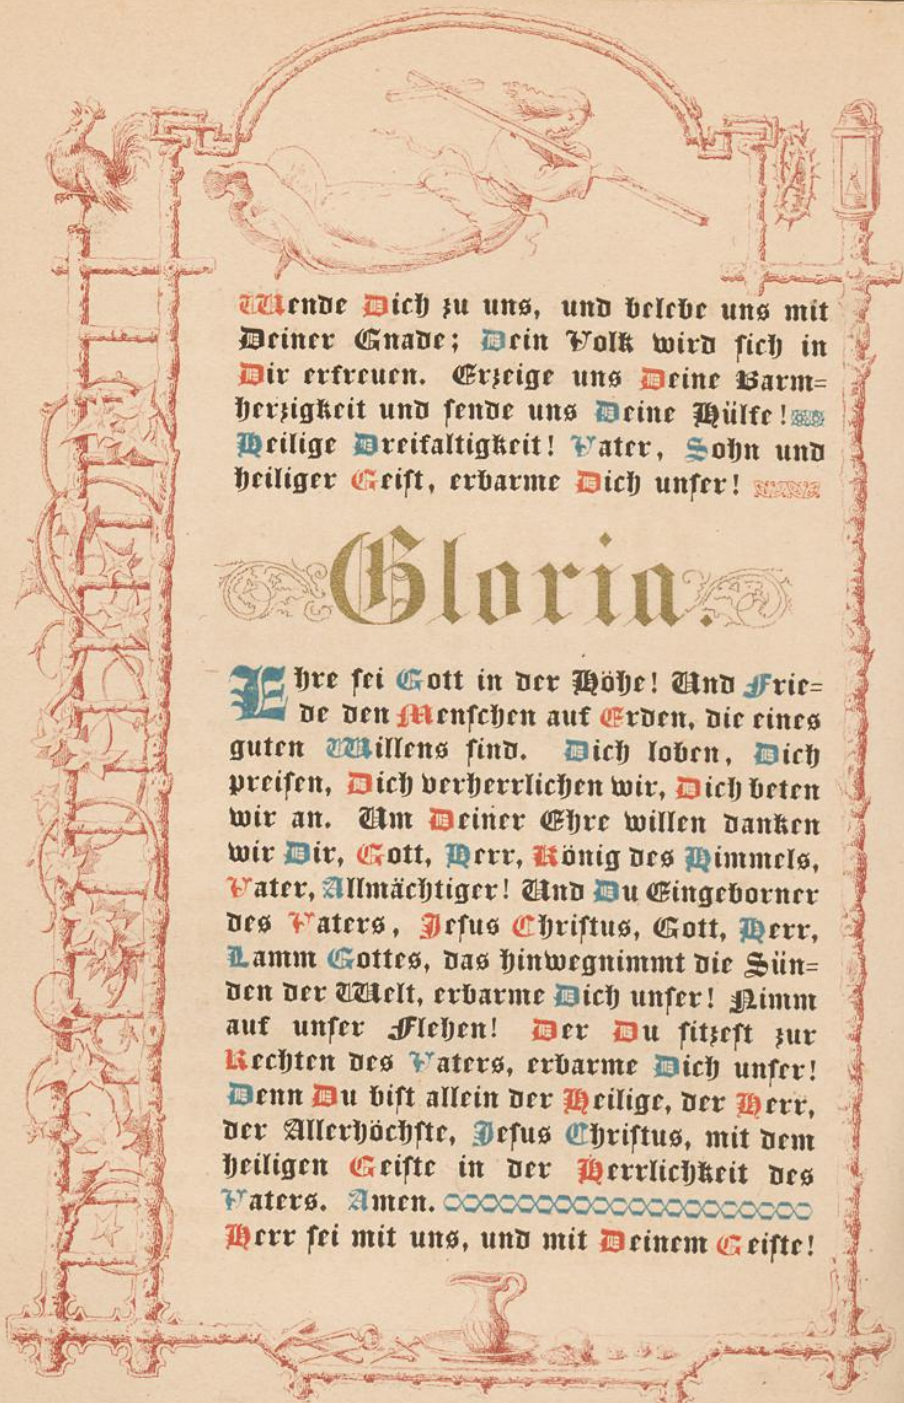 Wende Dich zu uns, und belebe uns mit
Deiner Gnade; Dein Volk wird sich in
Dir erfreuen. Erzeige uns Deine Barm=
herzigkeit und sende uns Deine Hülfe!
Heilige Dreifaltigkeit! Vater, Sohn und
heiliger Geist, erbarme Dich unser!
Gloria.
Ehre sei Gott in der Höhe! Und Frie=
de den Menschen auf Erden, die eines
guten Willens sind. Dich loben, Dich
preisen, Dich verherrlichen wir, Dich beten
wir an. Um Deiner Ehre willen danken
wir Dir, Gott, Herr, König des Himmels,
Vater, Allmächtiger! Und Du Eingeborner
des Vaters, Jesus Christus, Gott, Herr,
Lamm Gottes, das hinwegnimmt die Sün=
den der Welt, erbarme Dich unser! Nimm
auf unser Flehen! Der Du sitzest zur
Rechten des Vaters, erbarme Dich unser!
Denn Du bist allein der Heilige, der Herr,
der Allerhöchste, Jesus Christus, mit dem
heiligen Geiste in der Herrlichkeit des
Vaters. Amen.
Herr sei mit uns, und mit Deinem Geiste!